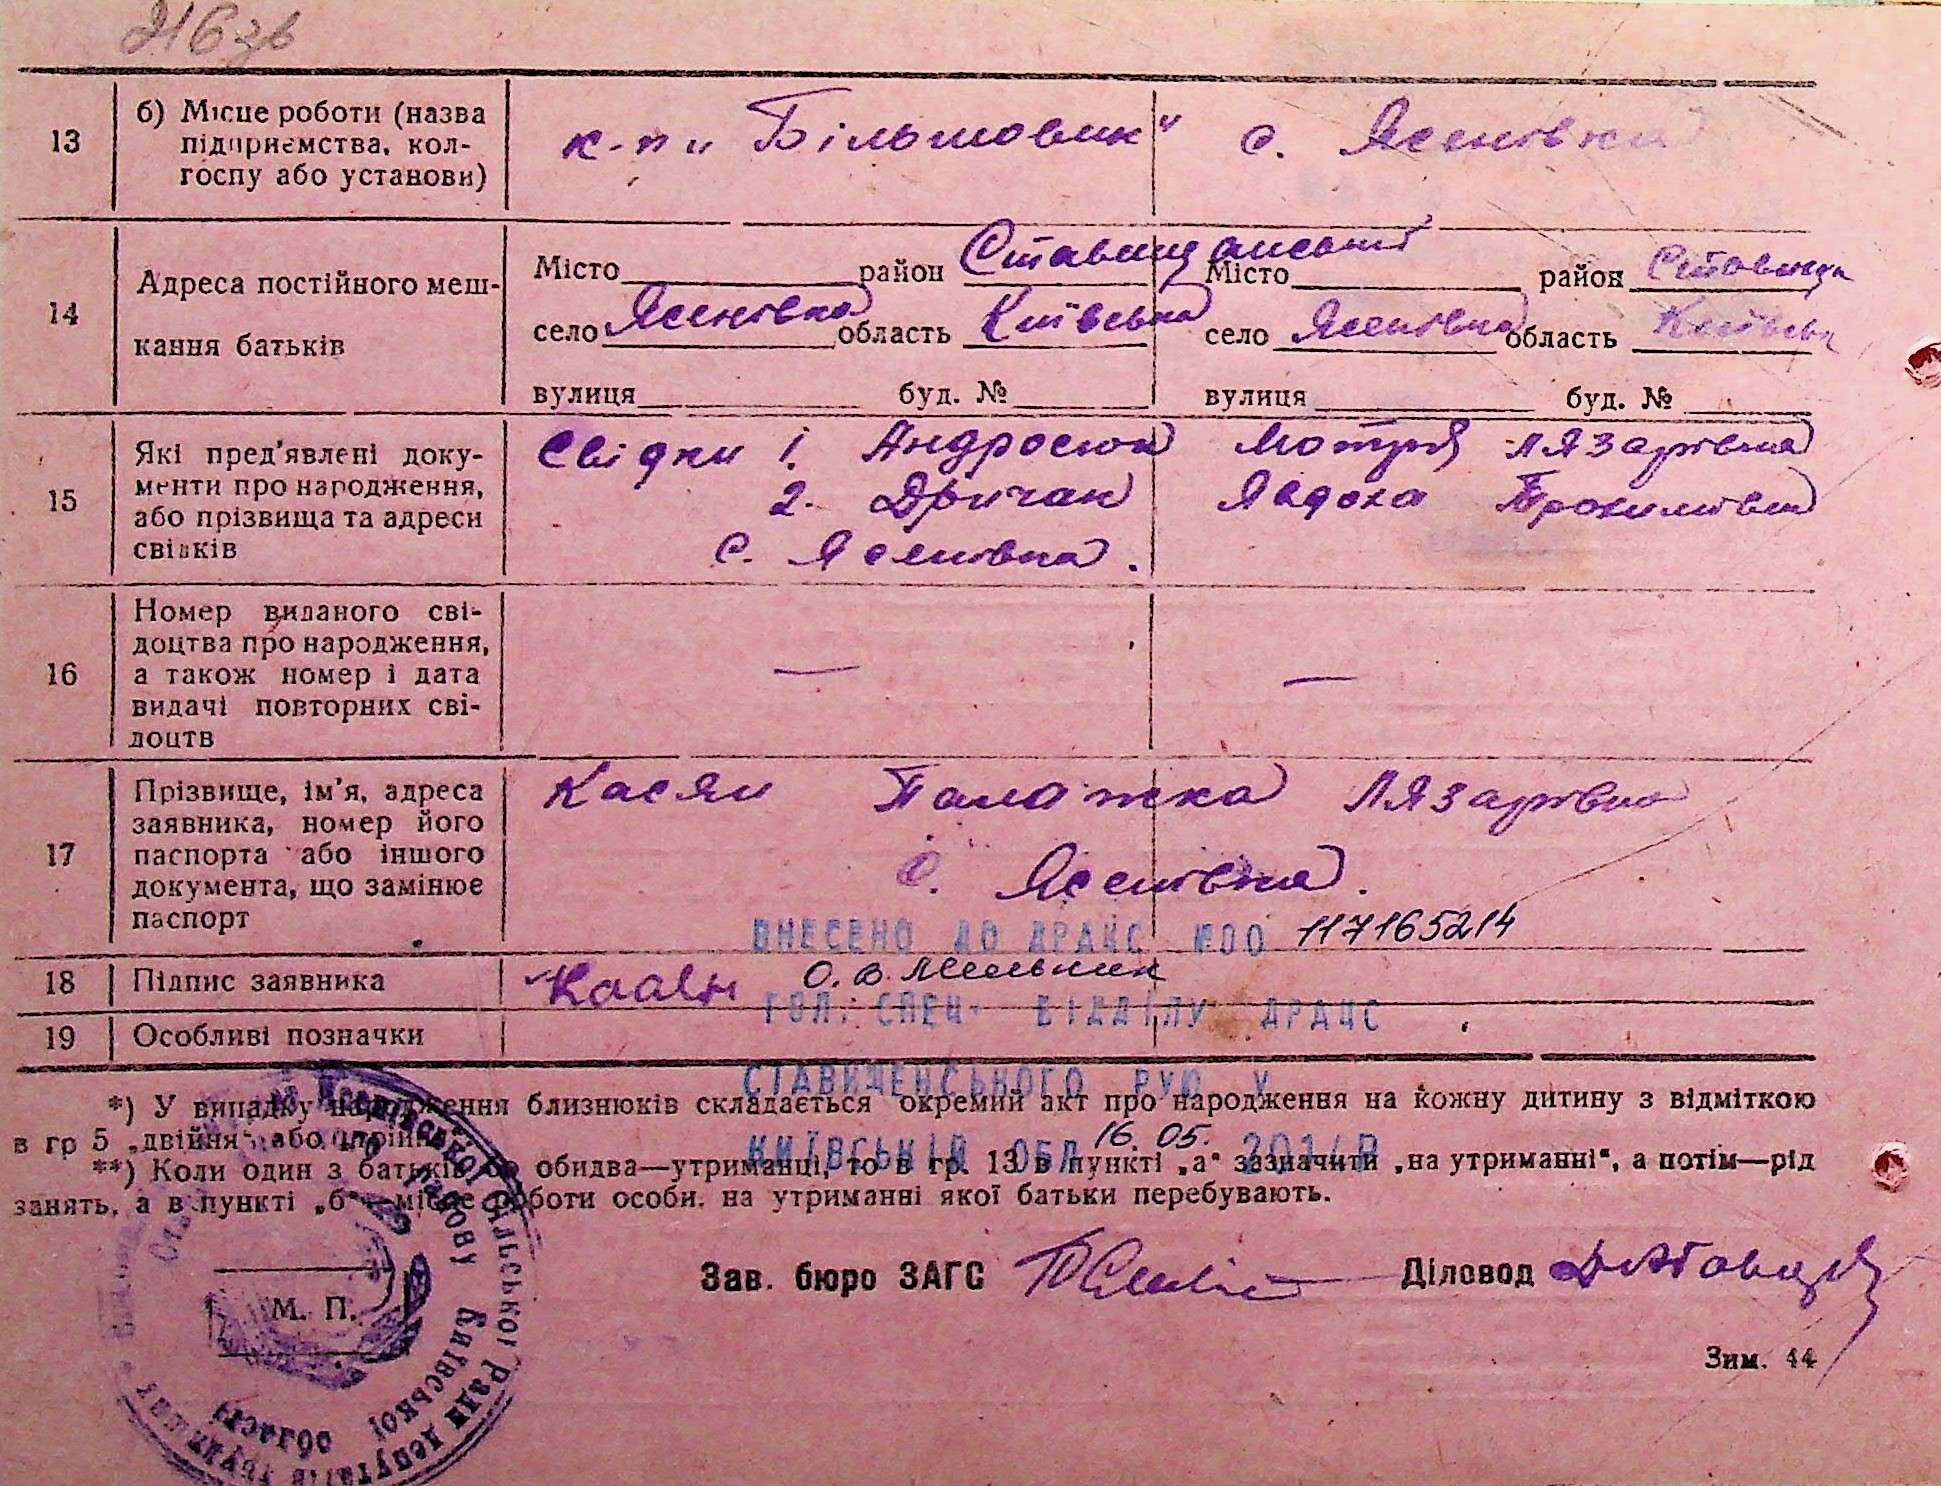 216зв
13 б) Місце роботи (назва підприємства, колгоспу або установи) к-п „Більшовик“ с. Ясенівка
14 Адреса постійного мешкання батьків
Місто район Ставищанський Місто район Ставищ
село Ясенівка область Київська село Ясенівка область Київськ
вулиця буд. № вулиця буд. №
15 Які пред'явлені документи про народження, або прізвища та адреси свідків
Свідки 1. Андросюк Мотря Лязарівна
2. Дричак Явдоха Трохимівна
с. Ясенівка.
16 Номер виданого свідоцтва про народження, а також номер і дата видачі повторних свідоцтв — —
17 Прізвище, ім'я, адреса заявника, номер його паспорта або іншого документа, що замінює паспорт
Касян Палажка Лязарівна
с. Ясенівка.
ВНЕСЕНО ДО ДРАЦС №00 117165214
18 Підпис заявника О.В. Мельник
ГОЛ. СПЕЦ. ВІДДІЛУ ДРАЦС
19 Особливі позначки
СТАВИЩЕНСЬКОГО РУЮ У
*) У випадку народження близнюків складається окремий акт про народження на кожну дитину з відміткою
в гр 5 „двійня“, або „трійня“.
КИЇВСЬКІЙ ОБЛ 16.05. 2014Р
**) Коли один з батьків, або обидва—утриманці, то в гр. 13 в пункті „а“ зазначити „на утриманні“, а потім—рід
занять, а в пункті „б“—місце роботи особи, на утриманні якої батьки перебувають.
М. П.
Зав. бюро ЗАГС Діловод
сільської Ради депутатів трудящих
району Київської області
Зим. 44